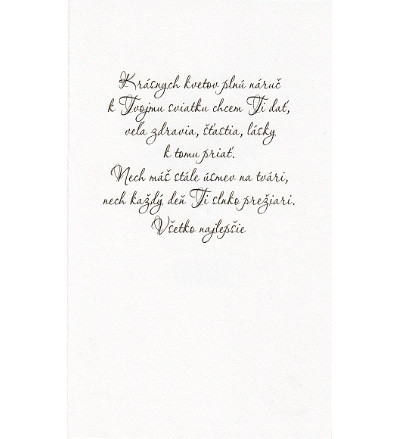 Krásnych kvetov plnú náruč
k Tvojmu sviatku chcem Ti dať,
veľa zdravia, šťastia, lásky
k tomu priať.
Nech máš stále úsmev na tvári,
nech každý deň Ti slnko prežiari.
Všetko najlepšie